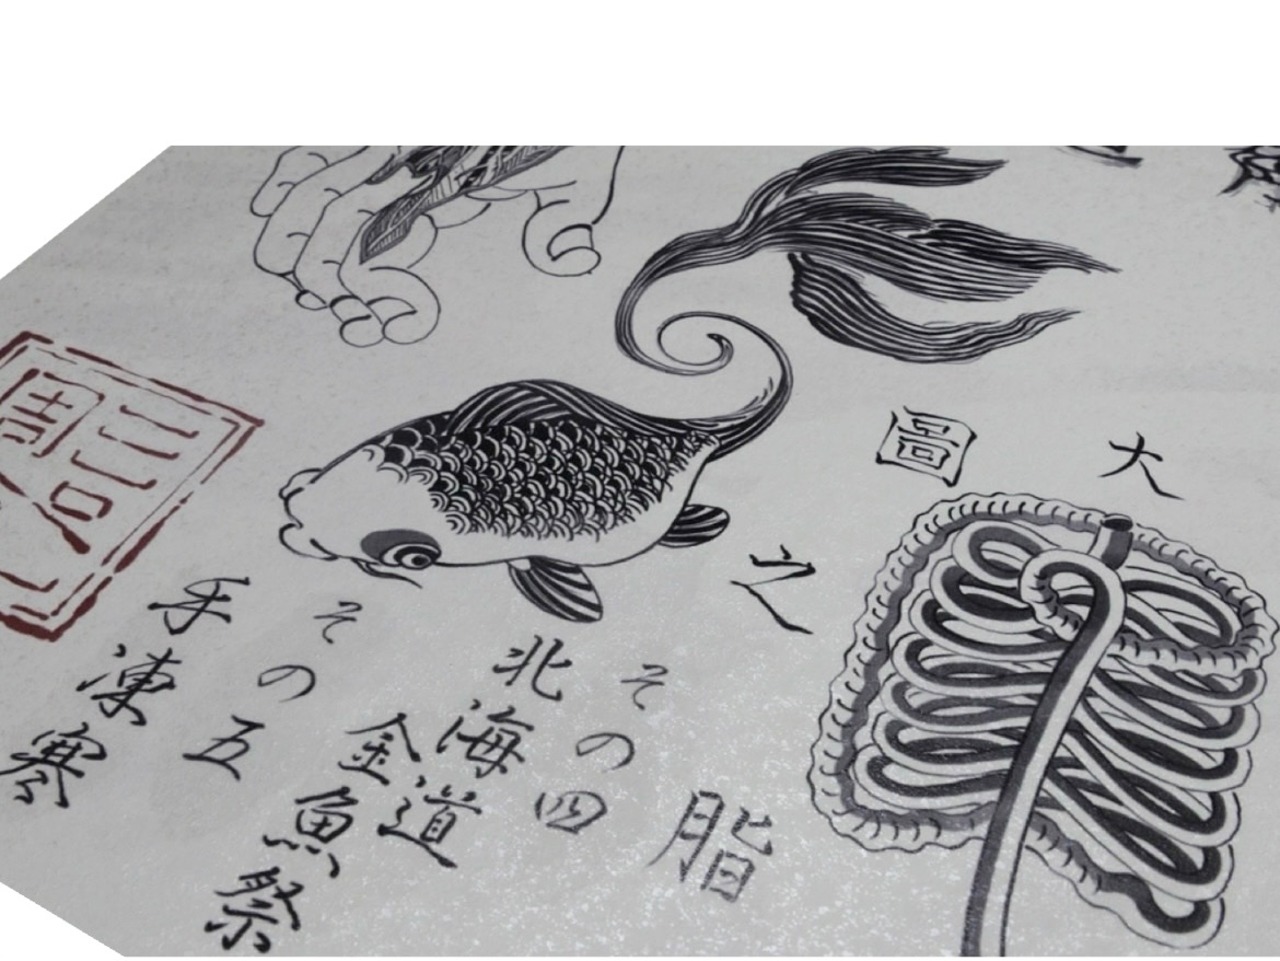 大
圖
之
脂
その四
北海道
金魚祭
その五
手凍寒